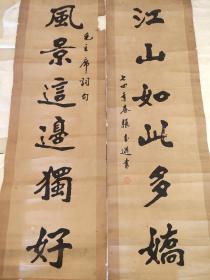 江山如此多嬌
七四年春張
書
風景這邊獨好
毛主席詞句